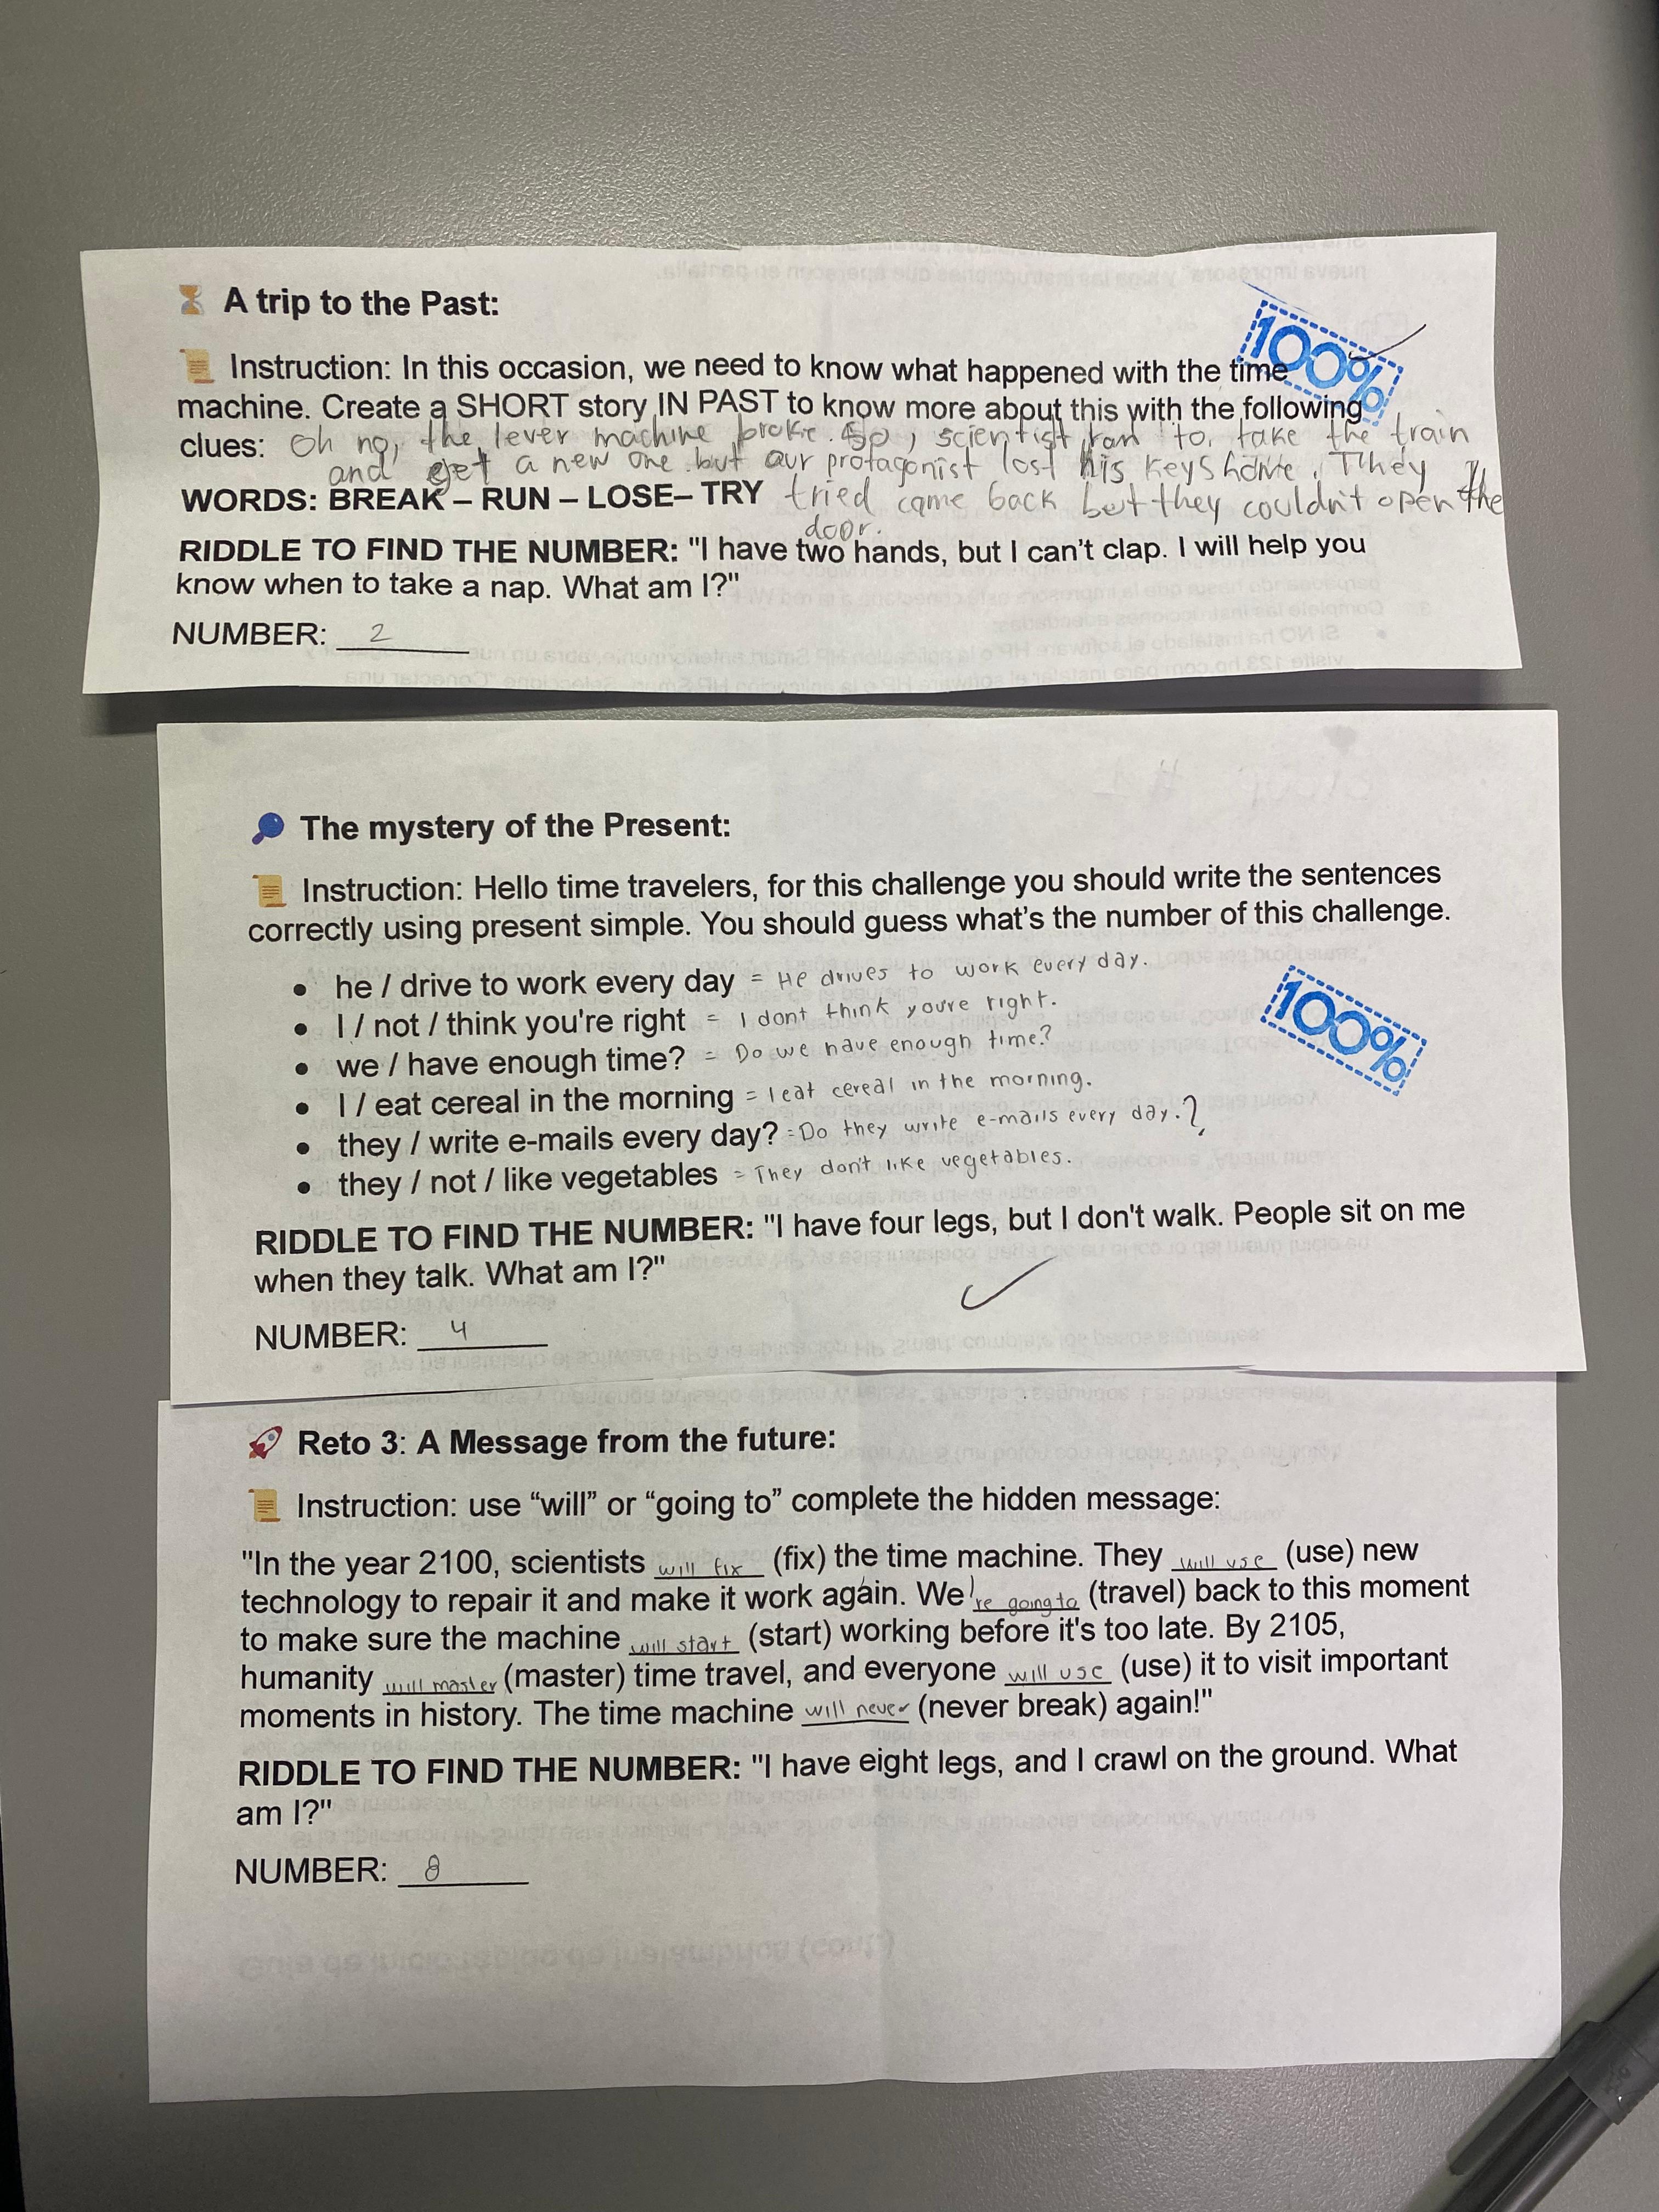 A trip to the Past:
100%
Instruction: In this occasion, we need to know what happened with the time
machine. Create a SHORT story IN PAST to know more about this with the following
clues: Oh no, the lever machine broke. So, scientist ran to take the train
and get a new one but our protagonist lost his keys home. They
WORDS: BREAK – RUN – LOSE– TRY tried came back but they couldn't open the
door.
RIDDLE TO FIND THE NUMBER: "I have two hands, but I can't clap. I will help you
know when to take a nap. What am I?"
NUMBER: 2
The mystery of the Present:
Instruction: Hello time travelers, for this challenge you should write the sentences
correctly using present simple. You should guess what's the number of this challenge.
• he / drive to work every day = He drives to work every day.
• I / not / think you're right = I dont think youre right.
• we / have enough time? = Do we have enough time?
• I / eat cereal in the morning = I eat cereal in the morning.
• they / write e-mails every day? = Do they write e-mails every day.?
• they / not / like vegetables = They don't like vegetables.
100%
RIDDLE TO FIND THE NUMBER: "I have four legs, but I don't walk. People sit on me
when they talk. What am I?"
NUMBER: 4
Reto 3: A Message from the future:
Instruction: use “will” or “going to” complete the hidden message:
"In the year 2100, scientists will fix (fix) the time machine. They will use (use) new
technology to repair it and make it work again. We're going to (travel) back to this moment
to make sure the machine will start (start) working before it's too late. By 2105,
humanity will master (master) time travel, and everyone will use (use) it to visit important
moments in history. The time machine will never (never break) again!"
RIDDLE TO FIND THE NUMBER: "I have eight legs, and I crawl on the ground. What
am I?"
NUMBER: 8